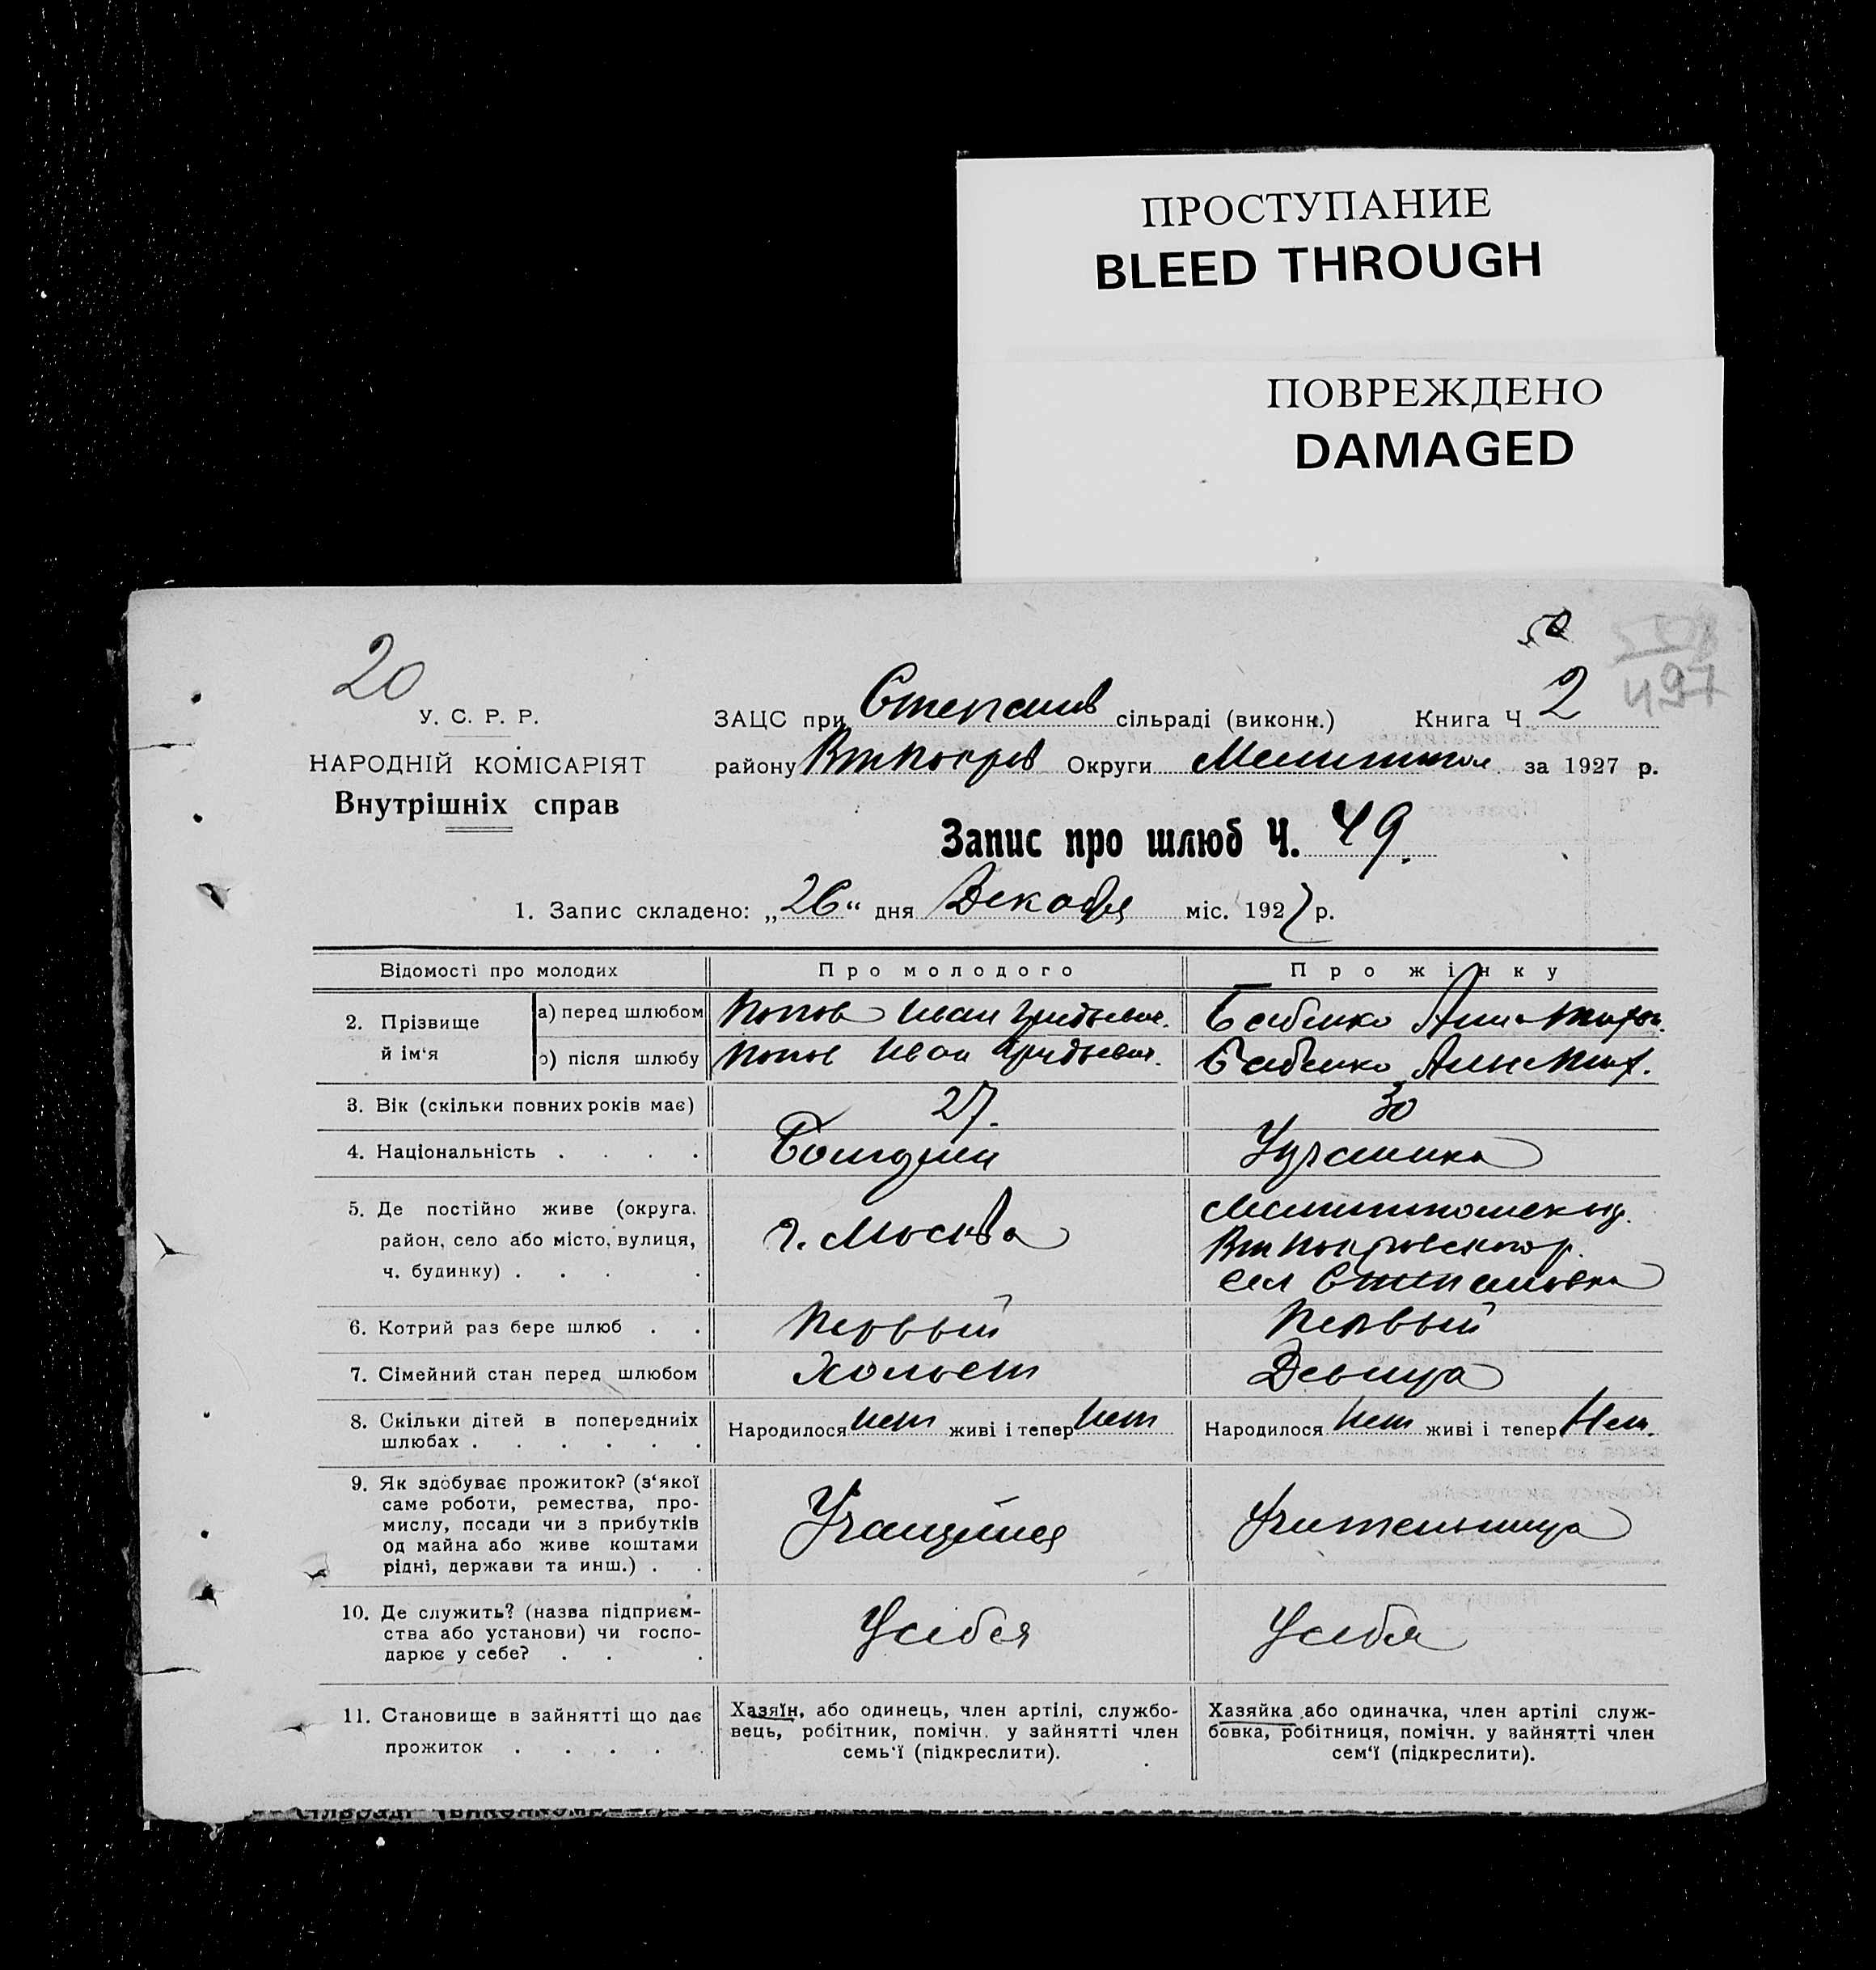 ПРОСТУПАНИЕ
BLEED THROUGH
ПОВРЕЖДЕНО
DAMAGED
20
50
497
У. С. Р. Р.
НАРОДНІЙ КОМІСАРІЯТ
Внутрішніх справ
ЗАЦС при Степанів сільраді (виконк.) Книга Ч 2
району Втпокров Округи Мелитопол. за 1927 р.
Запис про шлюб Ч. 49.
1. Запис складено: „26“ дня Декабря міс. 1927 р.
Відомості про молодих Про молодого Про жінку
2. Прізвище й ім‘я
а) перед шлюбом Попов Иван Бабенко Анна
б) після шлюбу Попов Иван Бабенко Анна
3. Вік (скільки повних років має) 27. 30
4. Національність . . . . Украинка
5. Де постійно живе (округа.
район, село або місто, вулиця,
ч. будинку) . . . .
г. Москва
Мелитопольск окр.
Втпокровского р.
сел Степановка
6. Котрий раз бере шлюб . . Первый Первый
7. Сімейний стан перед шлюбом Холост Девица
8. Скільки дітей в попередниіх
шлюбах . . . . . .
Народилося нет живі і тепер нет Народилося нет живі і тепер Нет.
9. Як здобуває прожиток? (з‘якої
саме роботи, ремества, про-
мислу, посади чи з прибутків
од майна або живе коштами
рідні, держави та инш.) . .
Учащийся Учительница
10. Де служить? (назва підприєм-
ства або установи) чи госпо-
дарює у себе? . . .
У себя У себя
11. Становище в зайнятті що дає
прожиток . . . . .
Хазяїн, або одинець, член артілі, службо-
вець, робітник, помічн. у зайнятті член
семь‘ї (підкреслити).
Хазяйка або одиначка, член артілі служ-
бовка, робітниця, помічн. у зайнятті член
сем‘ї (підкреслити).